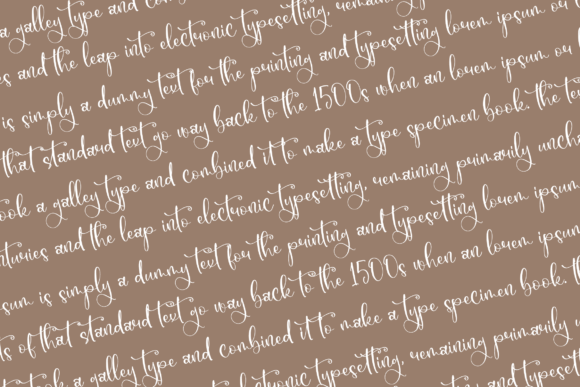 a galley type and
and the leap into electronic typesetting, remaining
is simply a dummy text for the printing and typesetting lorem ipsum ou
that standard text go way back to the 1500s when an lorem ipsum ou
ook a galley type and combined it to make a type specimen book. the te
nturies and the leap into electronic typesetting, remaining primarily unch
sum is simply a dummy text for the printing and typesetting lorem ipsum
ts of that standard text go way back to the 1500s when an lorem ipsum
ok a galley type and combined it to make a type specimen book. th
and the leap into electronic typesetting, remaining primarily u
text for the printing and typesetting